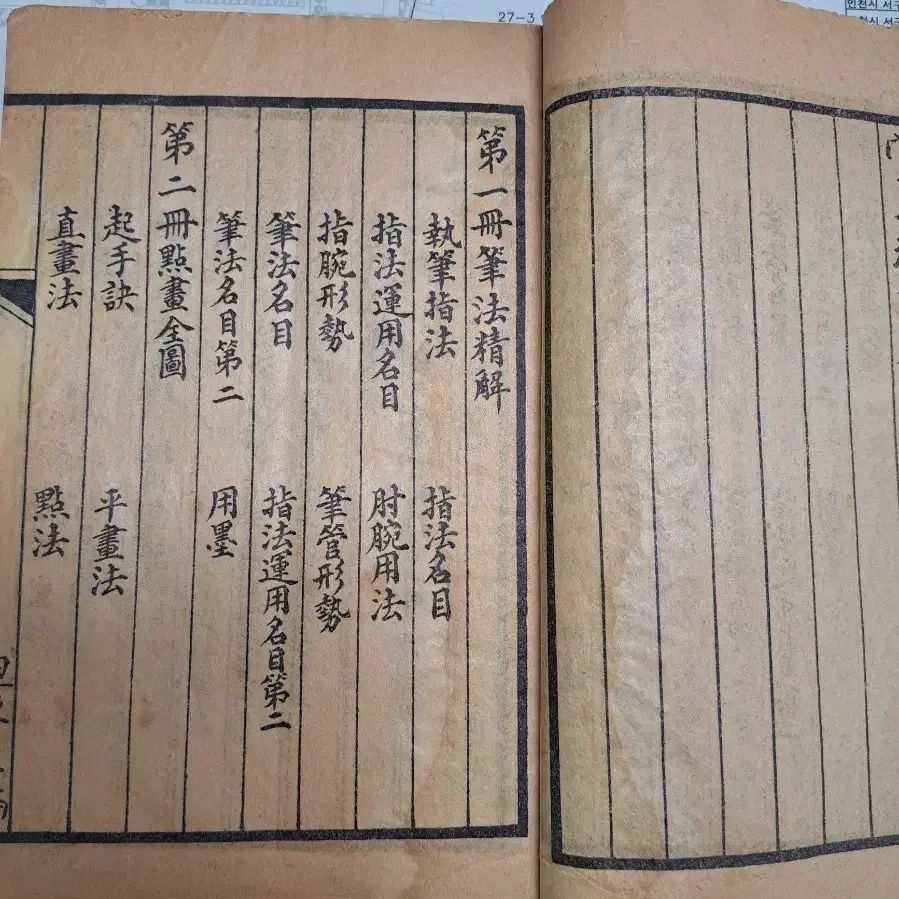 第一冊筆法精解
執筆指法 指法名目
指法運用名目 肘腕用法
指腕形勢 筆管形勢
筆法名目 指法運用名目第二
筆法名目第二 用墨
第二冊點畫全圖
起手訣 平畫法
直畫法 點法
27-3
인천시 서구